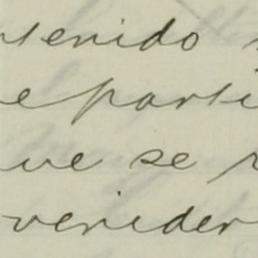 ntenido
e parti
ue se
venider